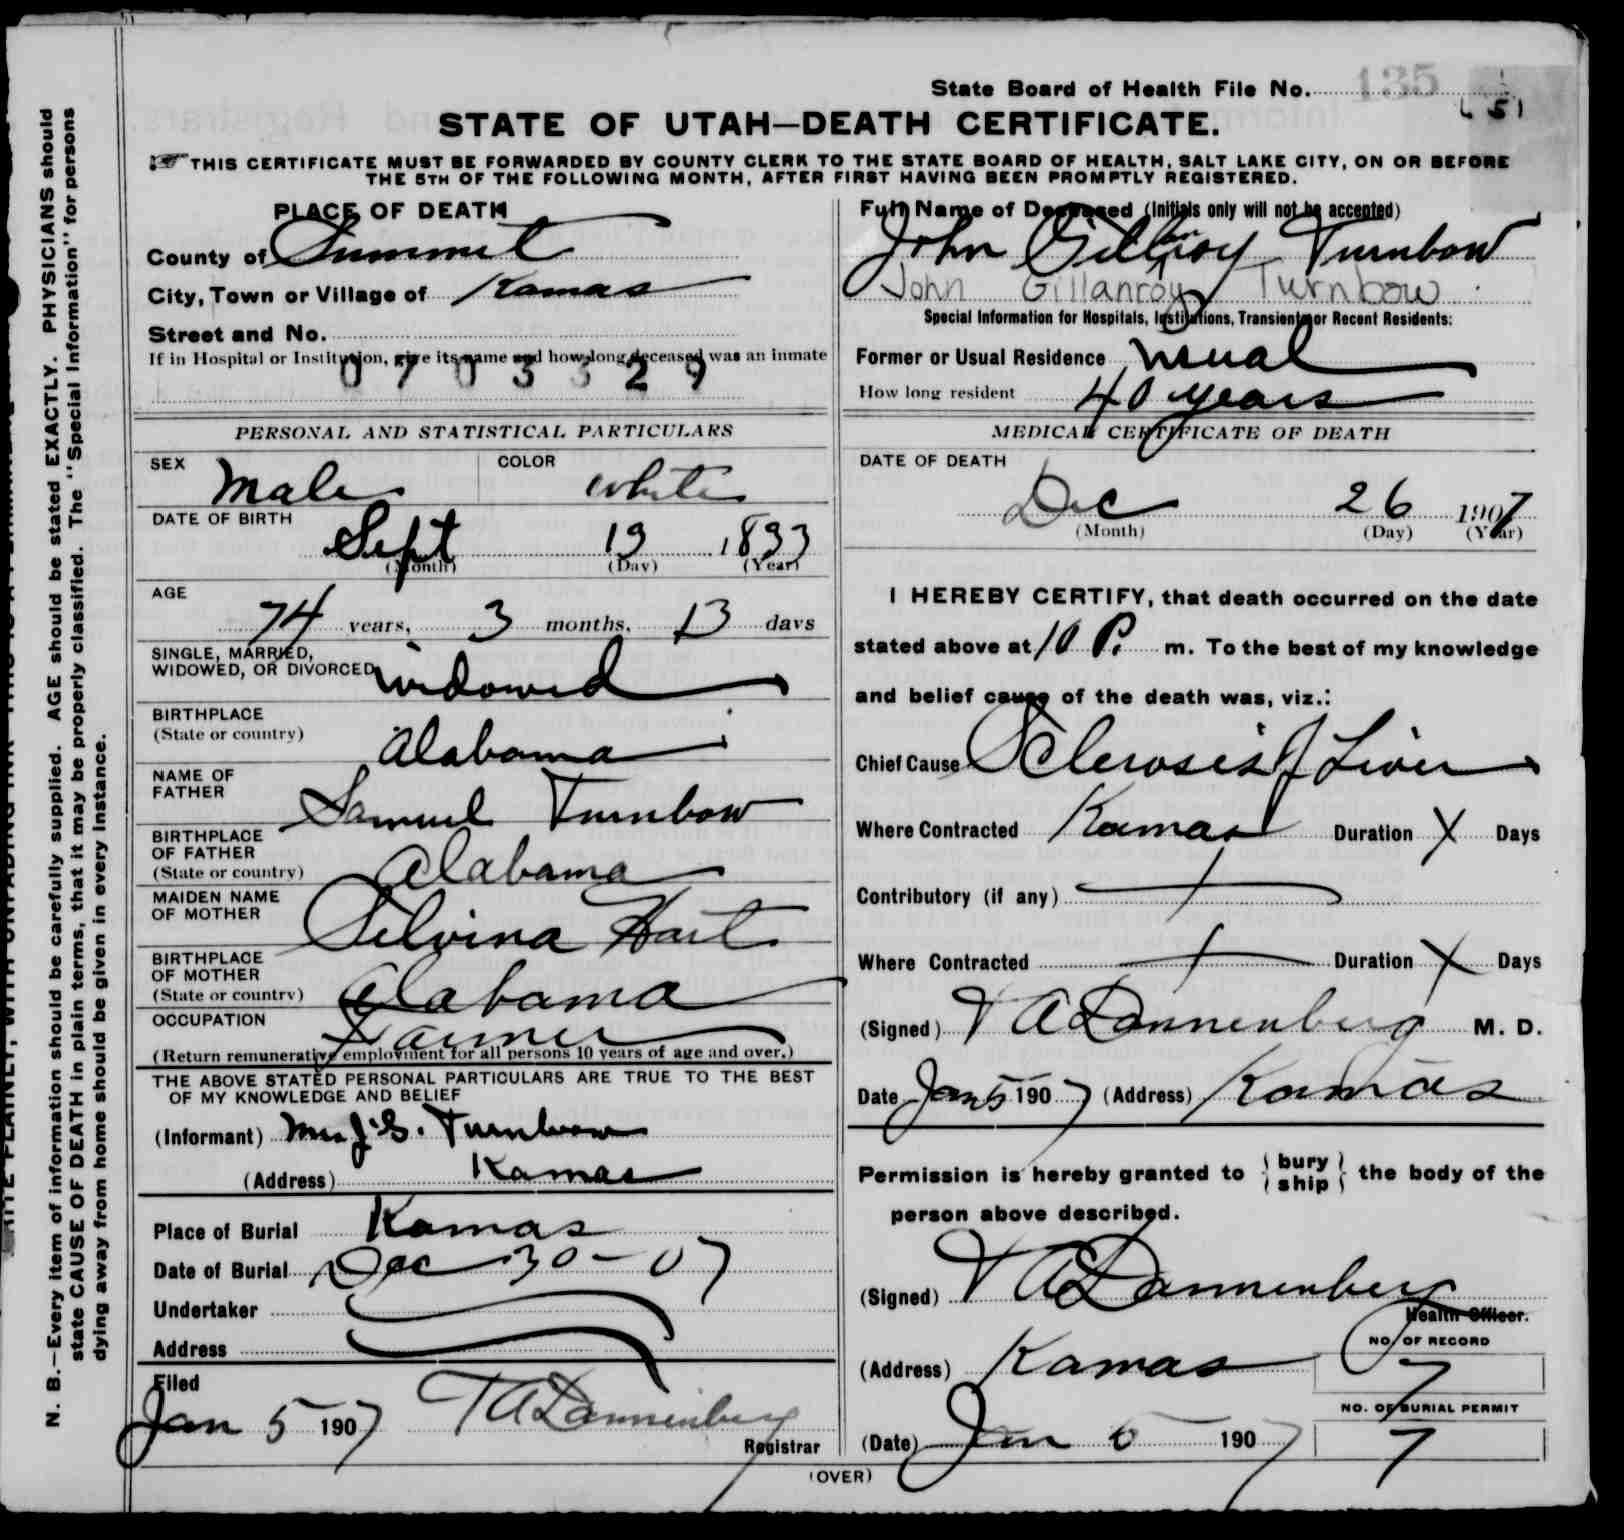 State Board of Health File No. 135
151
STATE OF UTAH—DEATH CERTIFICATE.
THIS CERTIFICATE MUST BE FORWARDED BY COUNTY CLERK TO THE STATE BOARD OF HEALTH, SALT LAKE CITY, ON OR BEFORE
THE 5TH OF THE FOLLOWING MONTH, AFTER FIRST HAVING BEEN PROMPTLY REGISTERED.
N. B.—Every item of information should be carefully supplied. AGE should be stated EXACTLY. PHYSICIANS should
state CAUSE OF DEATH in plain terms, that it may be properly classified. The "Special Information" for persons
dying away from home should be given in every instance.
PLACE OF DEATH
County of Summit
City, Town or Village of Kamas
Street and No.
If in Hospital or Institution, give its name and how long deceased was an inmate
0 7 0 3 3 2 9
Full Name of Deceased (Initials only will not be accepted)
John Gillanroy Turnbow
John Gillanroy Turnbow
Special Information for Hospitals, Institutions, Transients or Recent Residents:
Former or Usual Residence usual
How long resident 40 years
PERSONAL AND STATISTICAL PARTICULARS
SEX Male COLOR white
DATE OF BIRTH
Sept 13 1833
(Month) (Day) (Year)
AGE
74 years, 3 months, 13 days
SINGLE, MARRIED,
WIDOWED, OR DIVORCED widowed
BIRTHPLACE
(State or country) Alabama
NAME OF
FATHER Samuel Turnbow
BIRTHPLACE
OF FATHER
(State or country) Alabama
MAIDEN NAME
OF MOTHER Silvina Hart
BIRTHPLACE
OF MOTHER
(State or country) Alabama
OCCUPATION Farmer
(Return remunerative employment for all persons 10 years of age and over.)
THE ABOVE STATED PERSONAL PARTICULARS ARE TRUE TO THE BEST
OF MY KNOWLEDGE AND BELIEF
(Informant) Mrs J. G. Turnbow
(Address) Kamas
Place of Burial Kamas
Date of Burial Dec 30-07
Undertaker
Address
Filed
Jan 5 1907 T A Dannenberg
Registrar
MEDICAL CERTIFICATE OF DEATH
DATE OF DEATH
Dec 26 1907
(Month) (Day) (Year)
I HEREBY CERTIFY, that death occurred on the date
stated above at 10 P. m. To the best of my knowledge
and belief cause of the death was, viz.:
Chief Cause Sclerosis of Liver
Where Contracted Kamas Duration X Days
Contributory (if any)
Where Contracted Duration X Days
(Signed) T A Dannenberg M. D.
Date Jan 5 1907 (Address) Kamas
Permission is hereby granted to { bury ship } the body of the
person above described.
(Signed) T A Dannenberg
Health Officer.
(Address) Kamas
NO. OF RECORD
7
NO. OF BURIAL PERMIT
7
(Date) Jan 5 1907
(OVER)